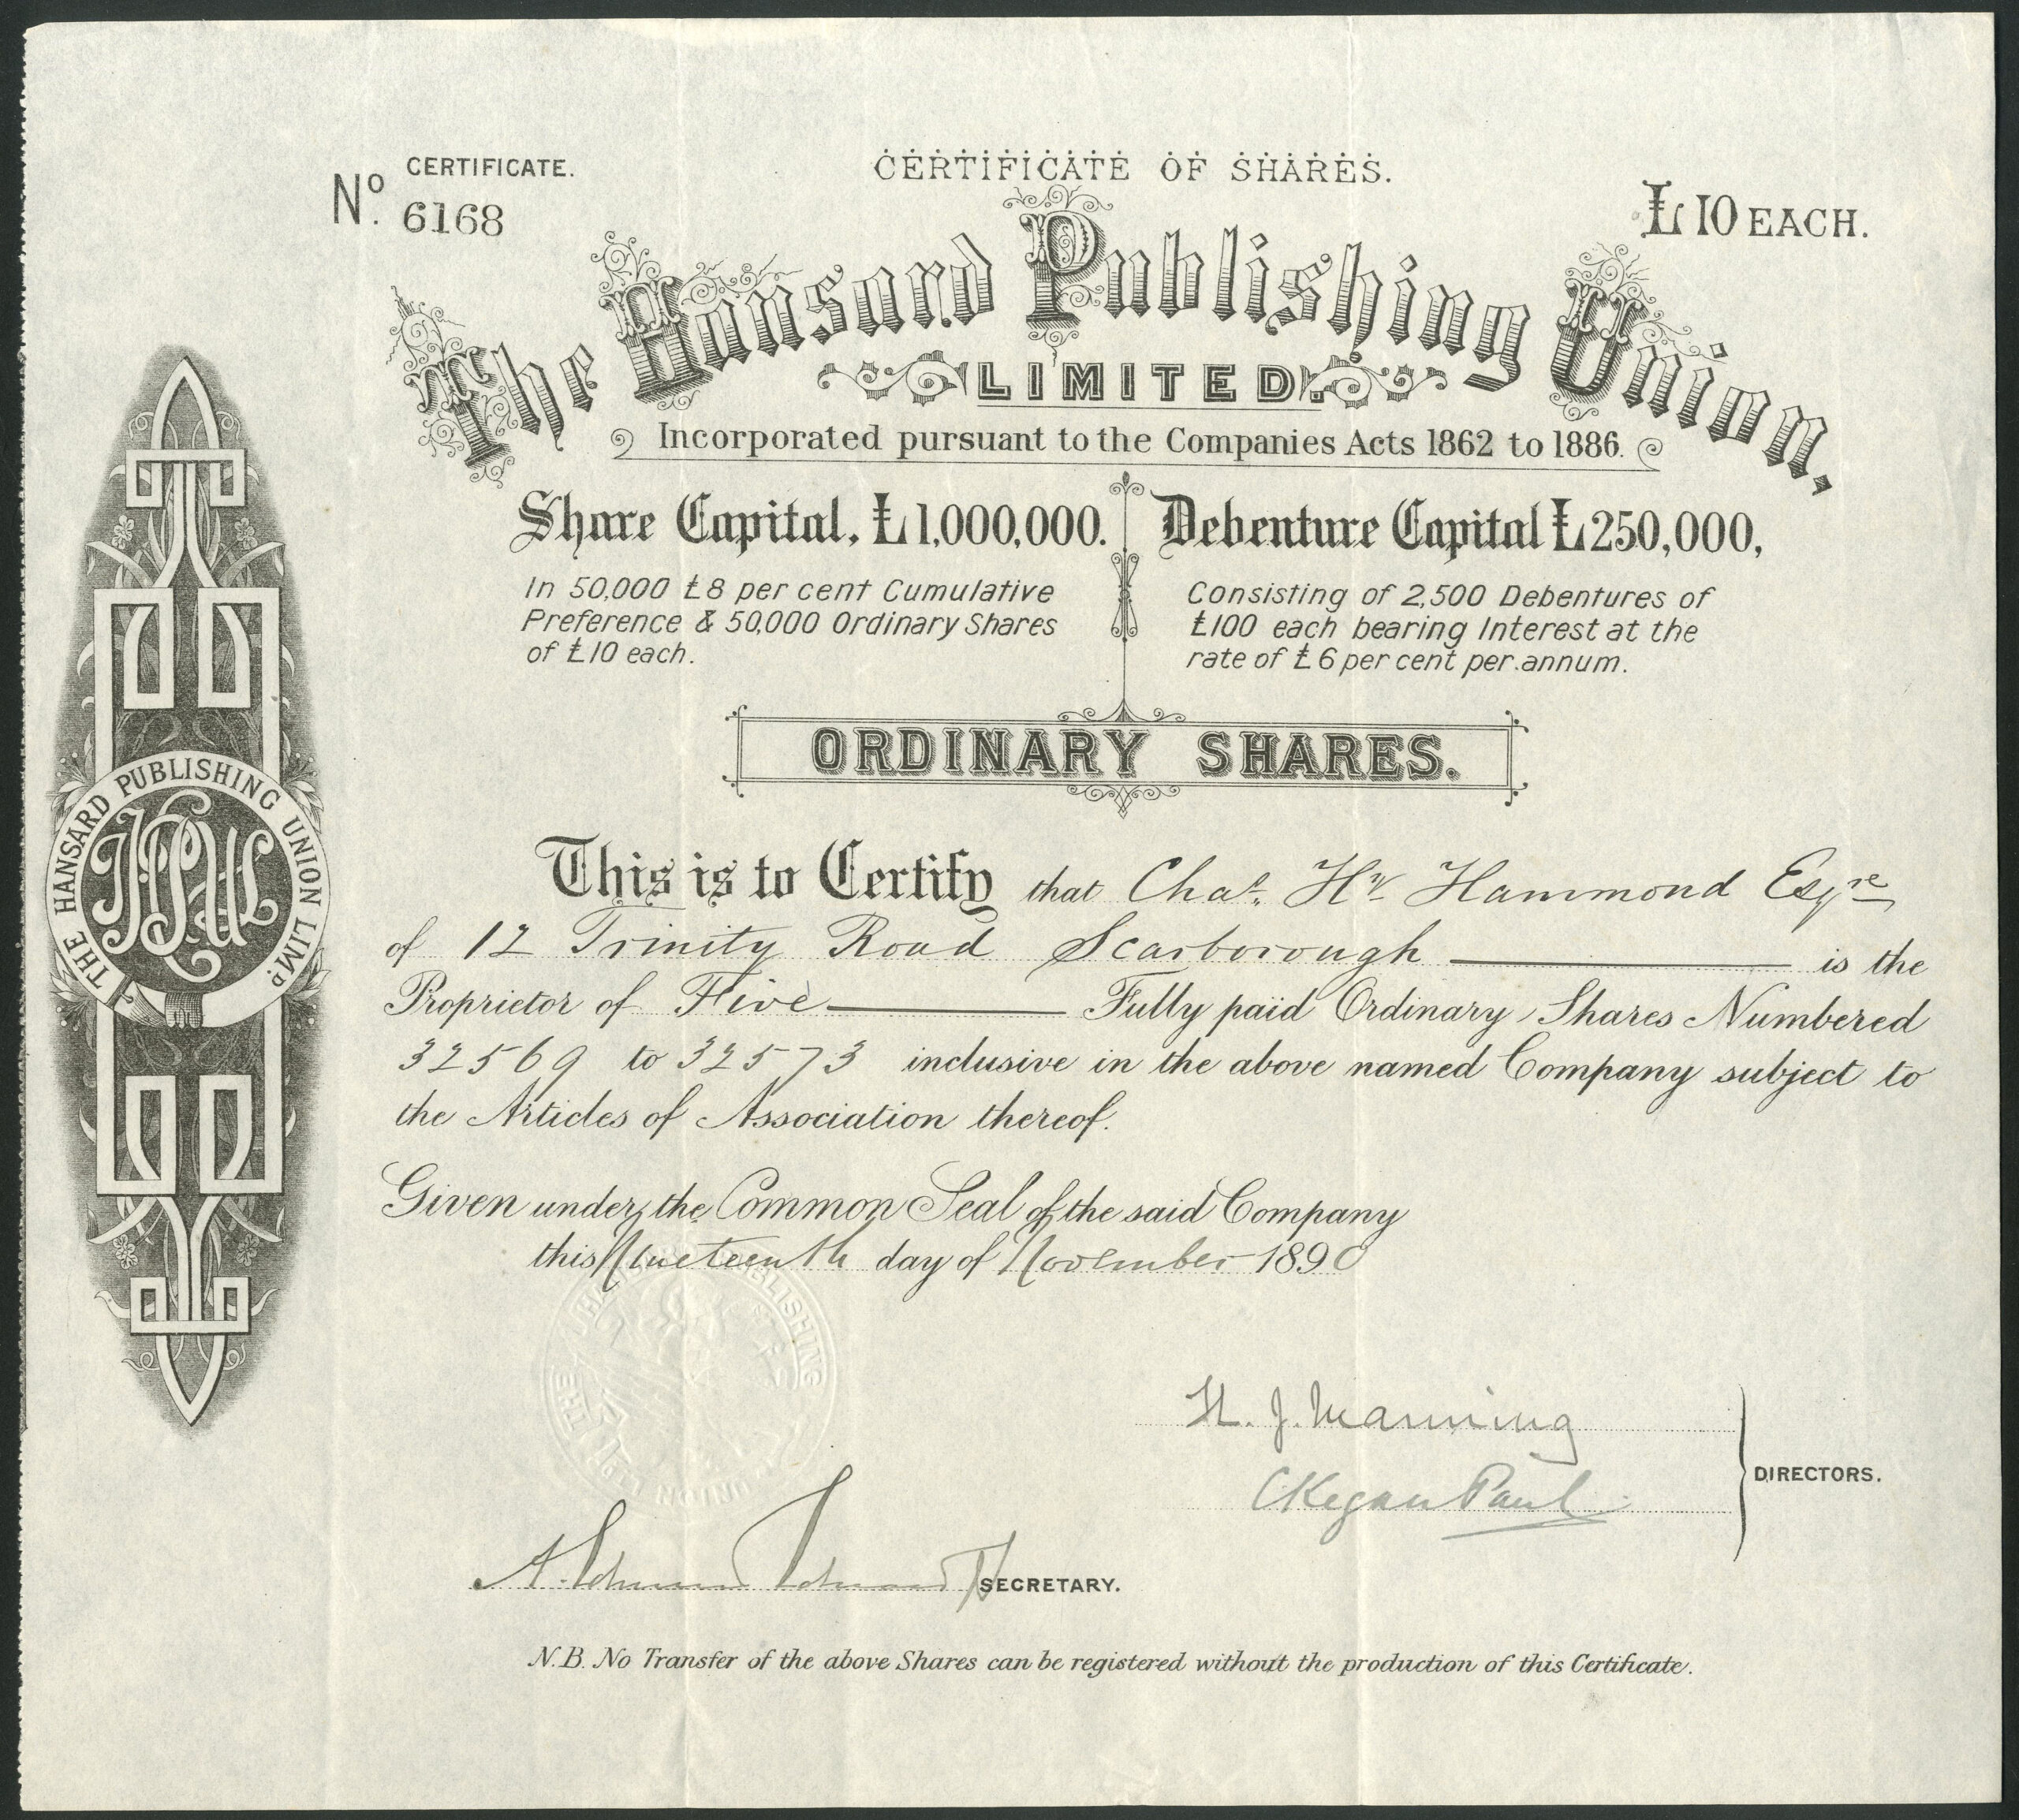 CERTIFICATE.
No. 6168
CERTIFICATE OF SHARES.
£10 EACH.
The Hansard Publishing Union,
LIMITED.
Incorporated pursuant to the Companies Acts 1862 to 1886.
Share Capital, £1,000,000.
In 50,000 £8 per cent Cumulative
Preference & 50,000 Ordinary Shares
of £10 each.
Debenture Capital £250,000,
Consisting of 2,500 Debentures of
£100 each bearing Interest at the
rate of £6 per cent per annum.
ORDINARY SHARES.
THE HANSARD PUBLISHING UNION LIMD.
HPUL
This is to Certify that Chas. Hy. Hammond Esqre
of 12 Trinity Road Scarborough is the
Proprietor of Five Fully paid Ordinary Shares Numbered
32569 to 32573 inclusive in the above named Company subject to
the Articles of Association thereof.
Given under the Common Seal of the said Company
this Nineteenth day of November 1890
THE HANSARD PUBLISHING UNION
H. J. Manning
C Kegan Paul
DIRECTORS.
SECRETARY.
N.B. No Transfer of the above Shares can be registered without the production of this Certificate.